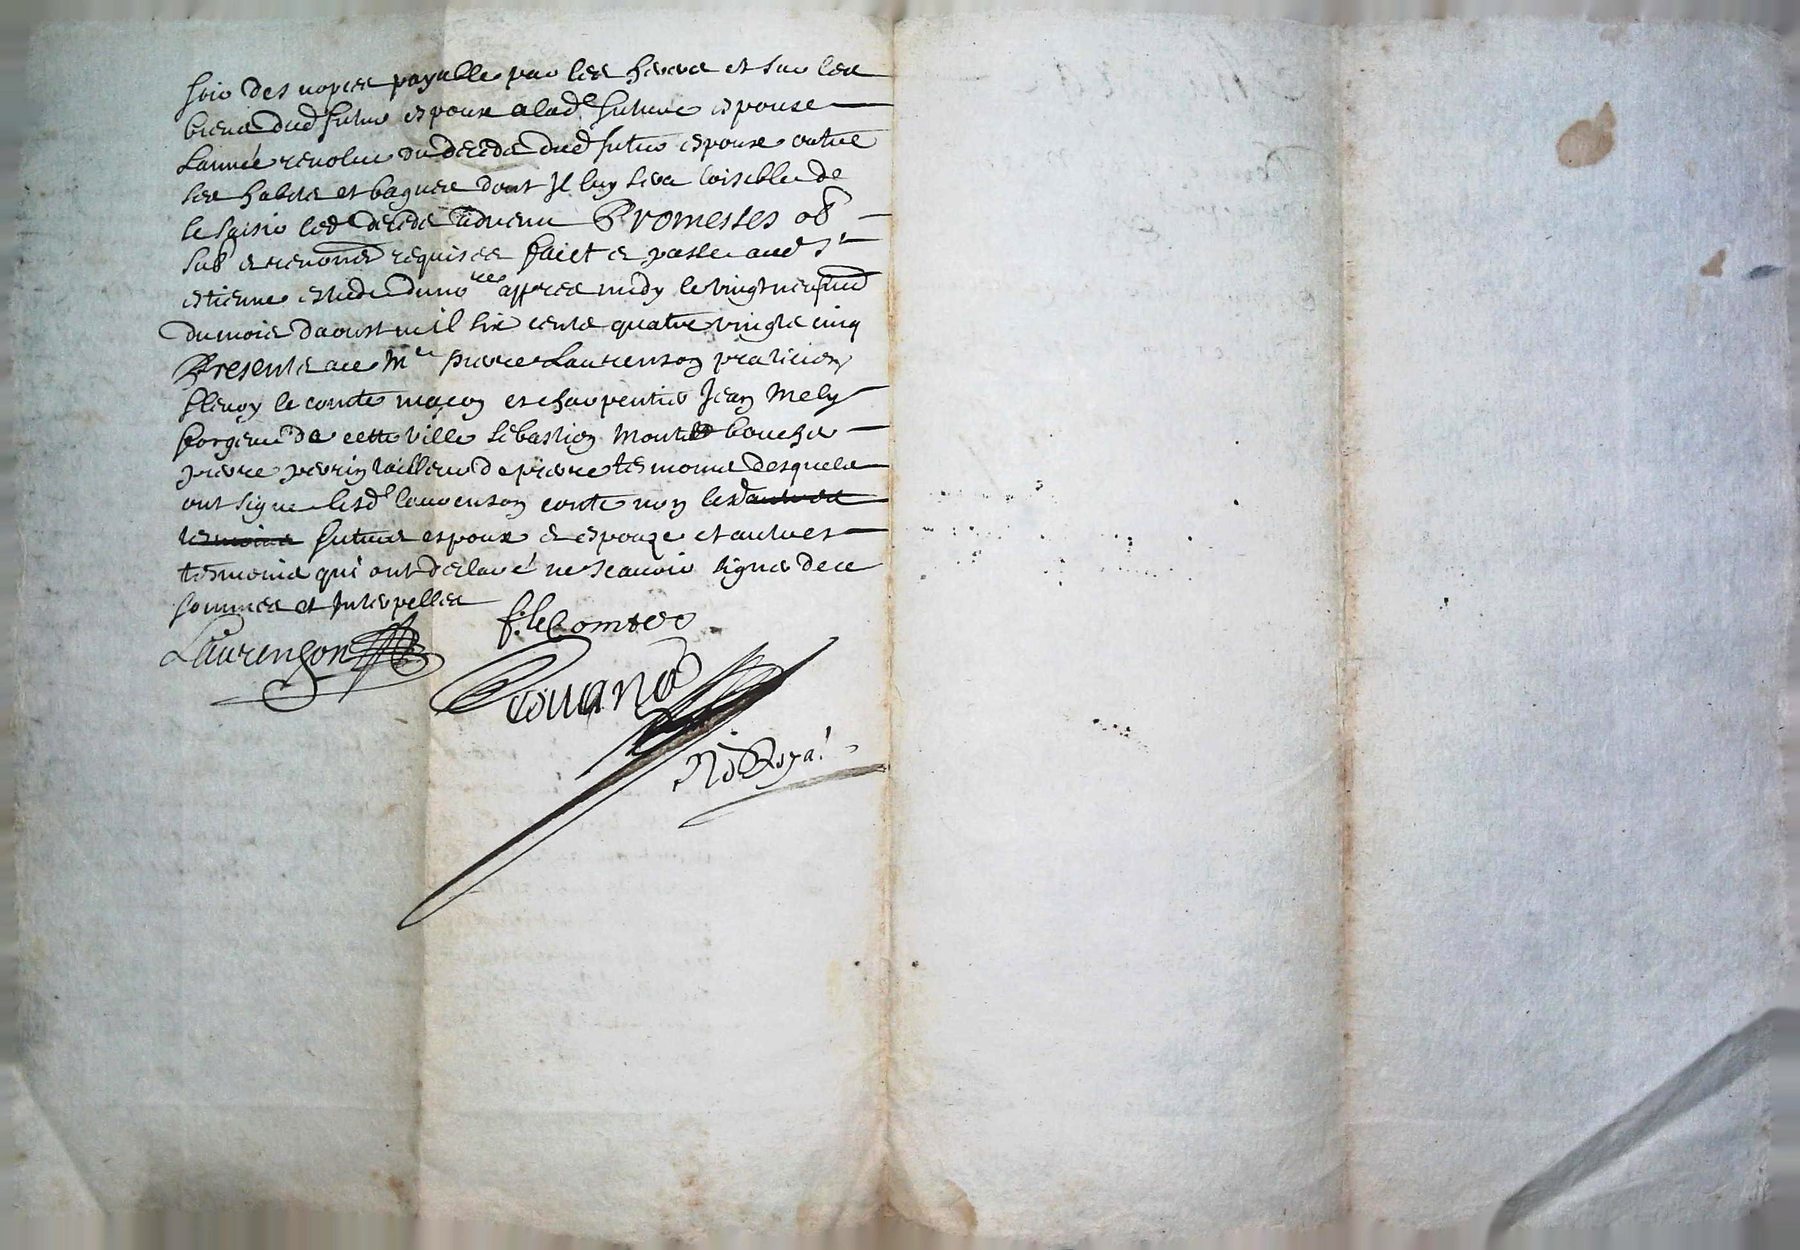 soir des nopces payable par les heres et sur les
biens dud futur espoux a lad. future espouse
Lannée revolue du deceds dud futur espoux outre
ses habits et bagues dont Il luy sera loisible de
se saisir led deceds advenu Promesses ob
sub et renon requises faict et passé aud St
estienne estude du nore appres midy le vingt neuf
du mois daoust mil six cents quatre vingts cinq
Presents a ce Me pierre Laurenson praticien
fleury le conte maçon et charpentier Jean Mely
forgeur de cette ville sebastien boucher
pierre perrin tailleur de pierre tesmoins desquels
ont signé lesd laurenson conte non lesd autres
tesmoins futurs espoux et espouze et autres
tesmoins qui ont declaré ne scavoir signer de ce
sommes et Interpelles
Laurenson f. le Comte